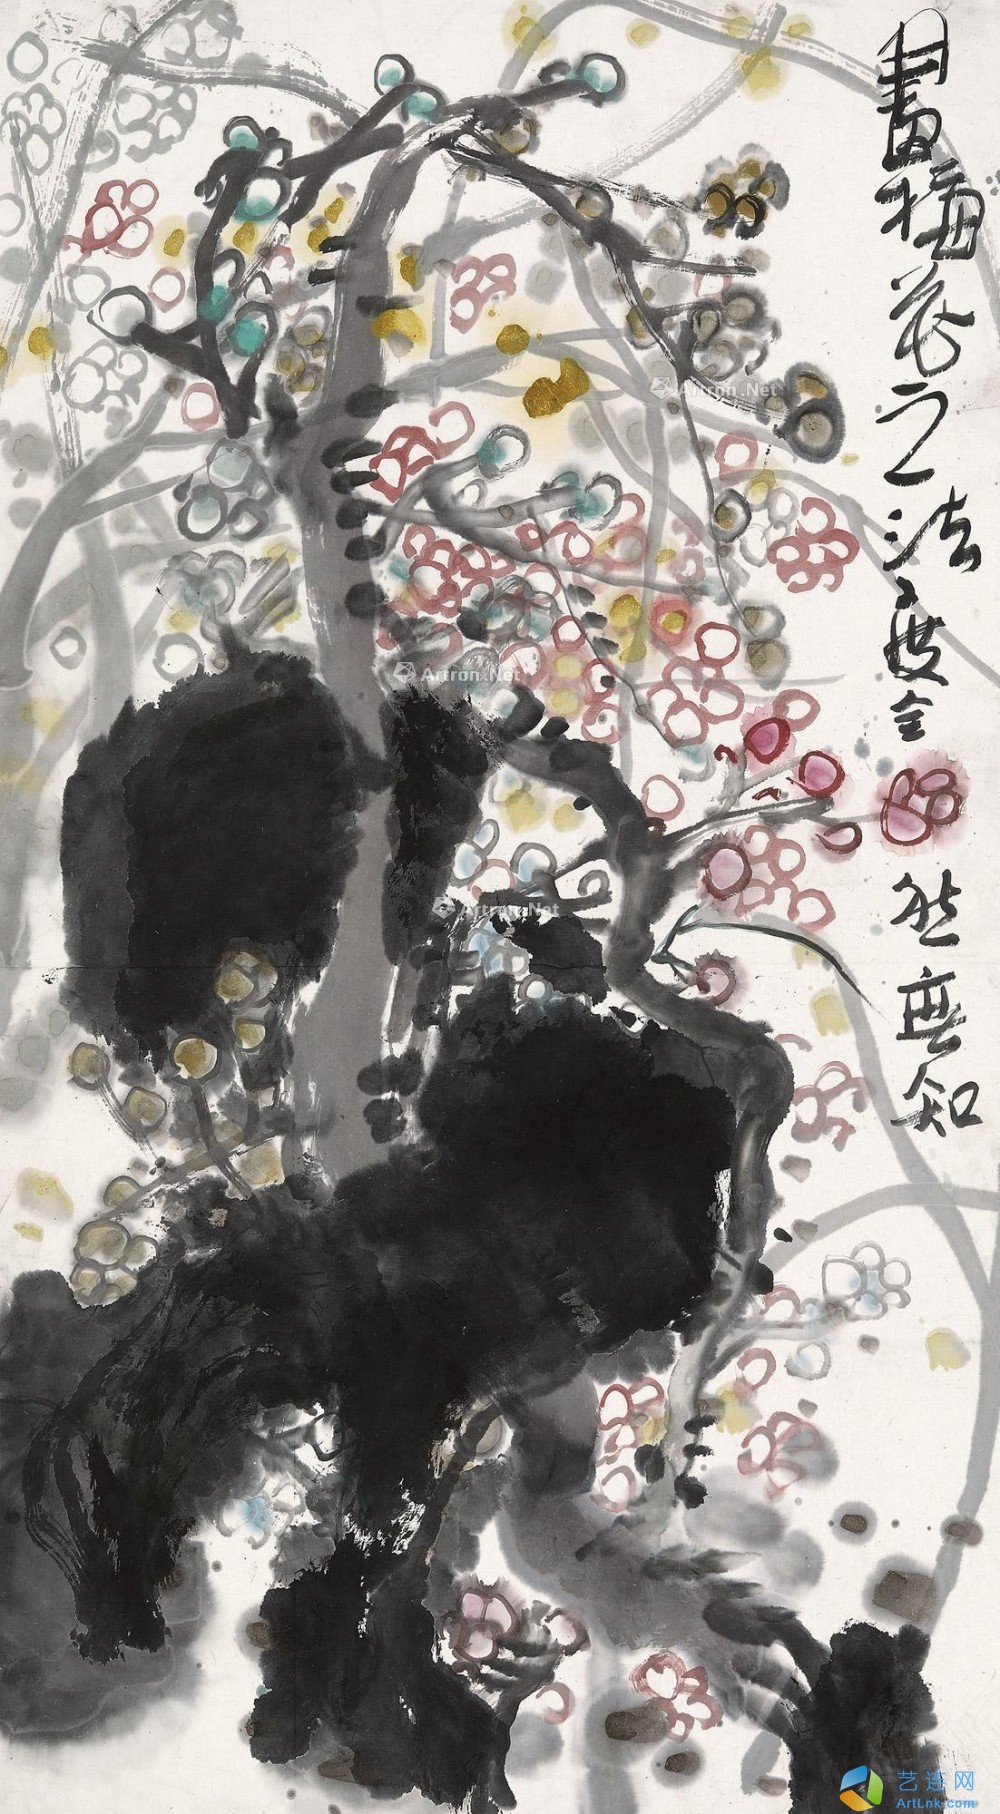 畫梅花之法度全然無知
Artron.Net
Artron.Net
Artron.Net
艺连网
ArtLnk.com